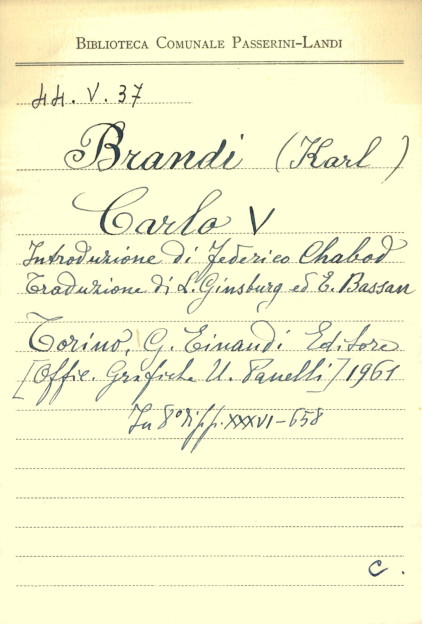 BIBLIOTECA COMUNALE PASSERINI-LANDI
44. V. 37
Brandi (Karl)
Carlo V
Introduzione di Federico Chabod
Traduzione di L. Ginsburg ed E. Bassan
Torino, G. Einaudi Editore
[Offic. Grafiche U. Panelli] 1961
In 8° di pp. XXXVI-658
C.